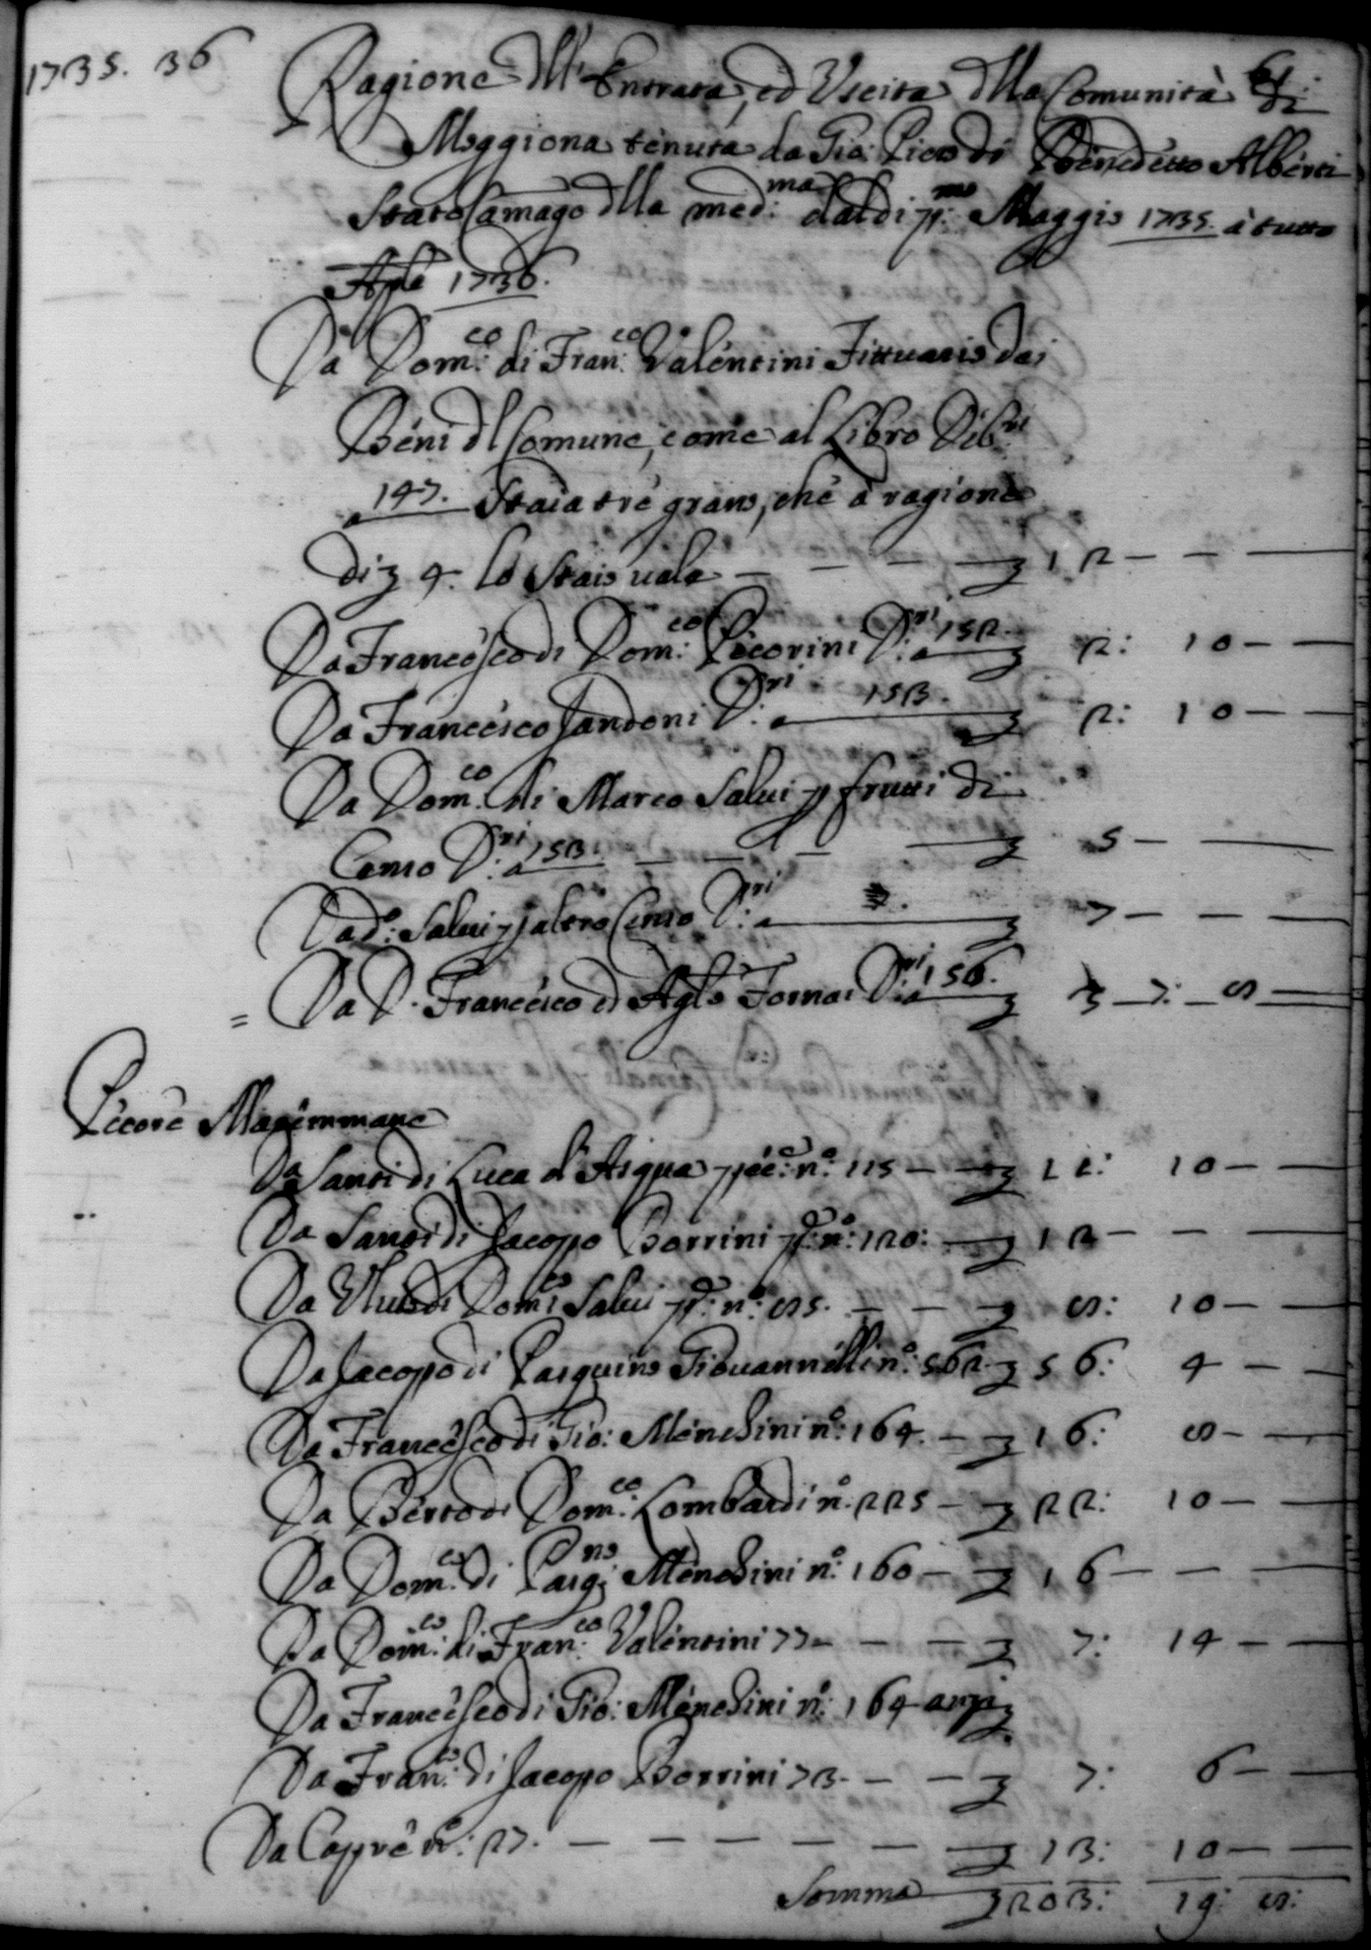 1735. 36
Ragione dll' Entrata, ed Uscita dlla Comunità di
Moggiona tenuta da Gio: Piero di Benedetto Alberti
Stato Camarg.o dlla med:ma dal dì p:mo Maggio 1735. à tutto
Aple 1736.
Da Dom:co di Fran:co Valentini Fittuario dei
Beni dl Comune, come al Libro Deb:ri
a 147. Staia tre grano, che à ragione
di ʒ 4. lo Staio vale — — — ʒ 12 — — —
Da Francesco di Dom:co Pecorini D:ri a 152. ʒ 2: 10 — —
Da Francesco Sandoni D:ri a 153. ʒ 2: 10 — —
Da Dom:co di Marco Salvi p frutti di
Censo D:ri a 153. — — — ʒ 5 — — —
Da d:o Salvi p altro Censo D:ri a ʒ 7 — — —
= Da D. Francesco d'Aglo Fornai D:ri a 156. ʒ — 7: 8 —
Pecore Maremmane
Da Santi di Luca d'Aiqua p péc:e n:o 115 — — ʒ 11: 10 — —
Da Santi di Jacopo Borrini p: n:o: 120: — ʒ 12 — — —
Da Ulivo di Dom:co Salvi p: n:o: 85. — — — ʒ 8: 10 — —
Da Jacopo di Pasquino Giovannelli n:o: 562. ʒ 56: 4 — —
Da Francesco di Gio: Menchini n:o: 164. — ʒ 16: 8 — —
Da Berto di Dom:co Lombardi n:o. 225 — ʒ 22: 10 — —
Da Dom:co di Pasq:no Menchini n:o: 160 — — ʒ 16 — — —
Da Dom:co di Fran:co Valentini 77 — — — ʒ 7: 14 — —
Da Francesco di Gio: Menchini n:o: 164 anzi ʒ
Da Fran:co di Jacopo Borrini 73. — — ʒ 7: 6 — —
Da Capre n:o: 27. — — — — — ʒ 13: 10 — —
Somma ʒ 203: 19: 8: